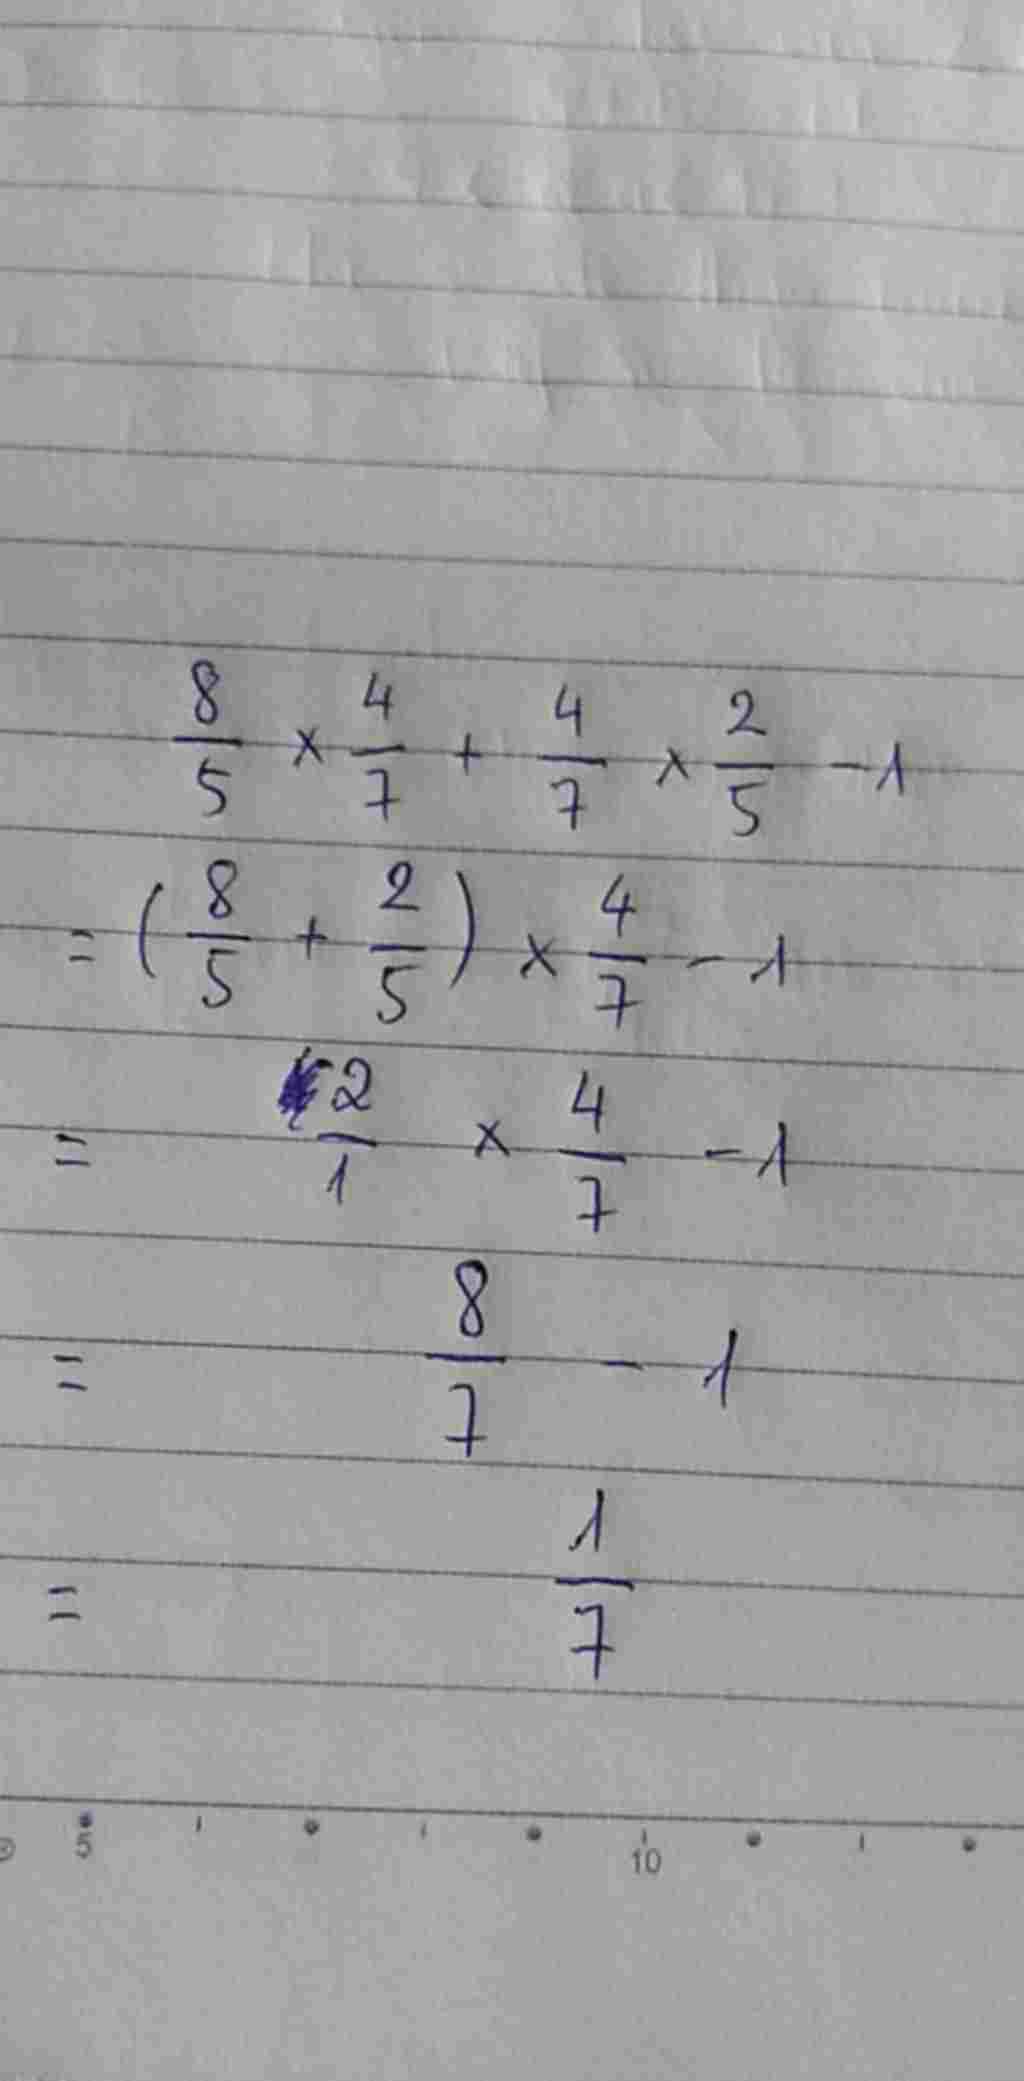 8/5 × 4/7 + 4/7 × 2/5 - 1
= (8/5 + 2/5) × 4/7 - 1
= 2/1 × 4/7 - 1
= 8/7 - 1
= 1/7
5 10